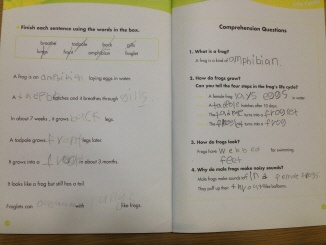 Finish each sentence using the words in the box.
breathe tadpole back gills
legs front amphibian froglet
A frog is an amphibian laying eggs in water.
A tadpole hatches and it breathes through gills.
In about 7 weeks, it grows back legs.
A tadpole grows front legs later.
It grows into a frog in about 3 months.
It looks like a frog but still has a tail.
Froglets can with like frogs.
Comprehension Questions
1. What is a frog?
A frog is a kind of amphibian.
2. How do frogs grow?
Can you tell the four steps in the frog's life cycle?
A female frog lays eggs in water
A tadpole hatches after 10 days.
The turns into a froglet
The turns into a frog
3. How do frogs look?
Frogs have webbed for swimming.
feet
4. Why do male frogs make noisy sounds?
Male frogs make sounds to female frogs
They puff up their like balloons.